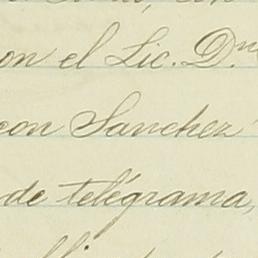 on el Lic. Dn
con Sanchez
de telégrama,